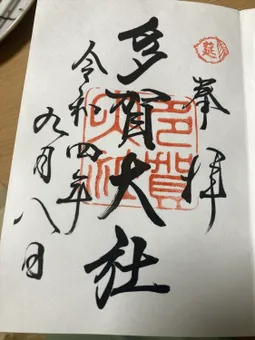 奉拝
多賀大社
令和四年
九月八日
多賀
大社
莚